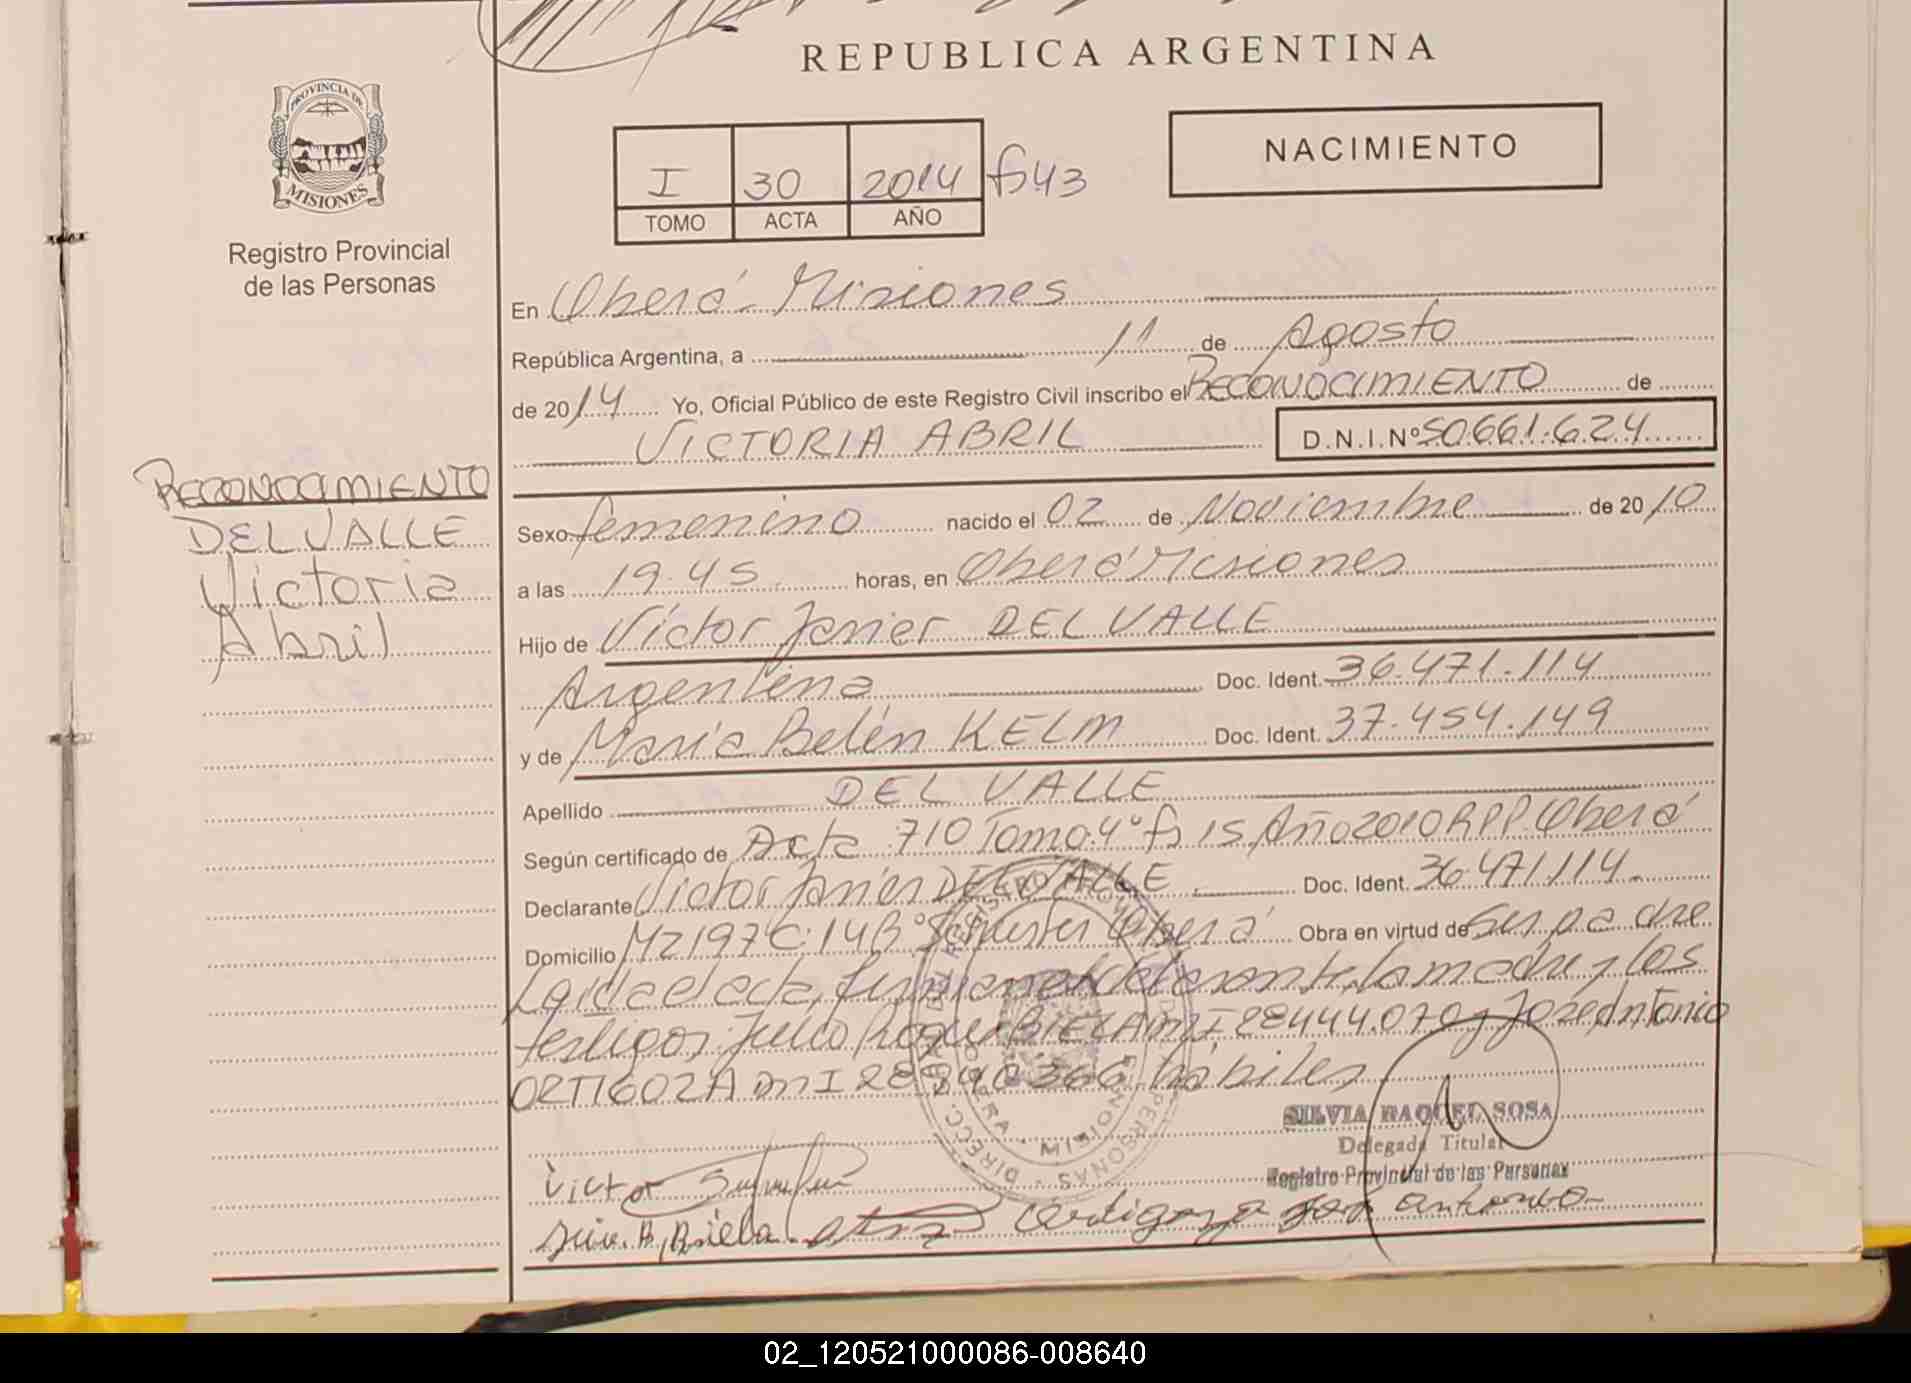 REPUBLICA ARGENTINA
PROVINCIA DE
MISIONES
Registro Provincial
de las Personas
I 30 2014 fs 43
TOMO ACTA AÑO
NACIMIENTO
En Oberá Misiones
República Argentina, a 11 de Agosto
de 2014 Yo, Oficial Público de este Registro Civil inscribo el RECONOCIMIENTO de
VICTORIA ABRIL D.N.I.Nº 50.661.624
RECONOCIMIENTO
DEL VALLE
Victoria
Abril
Sexo femenino nacido el 02 de Noviembre de 2010
a las 19.45 horas, en Oberá Misiones
Hijo de Víctor Javier DEL VALLE
Argentina Doc. Ident. 36.471.114
y de María Belén KELM Doc. Ident. 37.454.149
Apellido DEL VALLE
Según certificado de Acta 710 Tomo 4º fs 15 Año 2010 RPP Oberá
Declarante Victor Javier DEL VALLE Doc. Ident. 36.471.114.
Domicilio MZ 197 C.14 Bº Schuster Oberá Obra en virtud de ser padre
Leida el acta, firman el declarante, la madre y los
testigos: Julio Roque BIELA DNI 28444.070 y José Antonio
ORTIGOZA DNI 366 hábiles
DIRECC. GRAL. DEL REGISTRO PROVINCIAL DE LAS PERSONAS
OBERA - MISIONES
SILVIA RAQUEL SOSA
Delegada Titular
Registro Provincial de las Personas
Victor
Julio. R, Biela Ortigoza José antonio
02_120521000086-008640